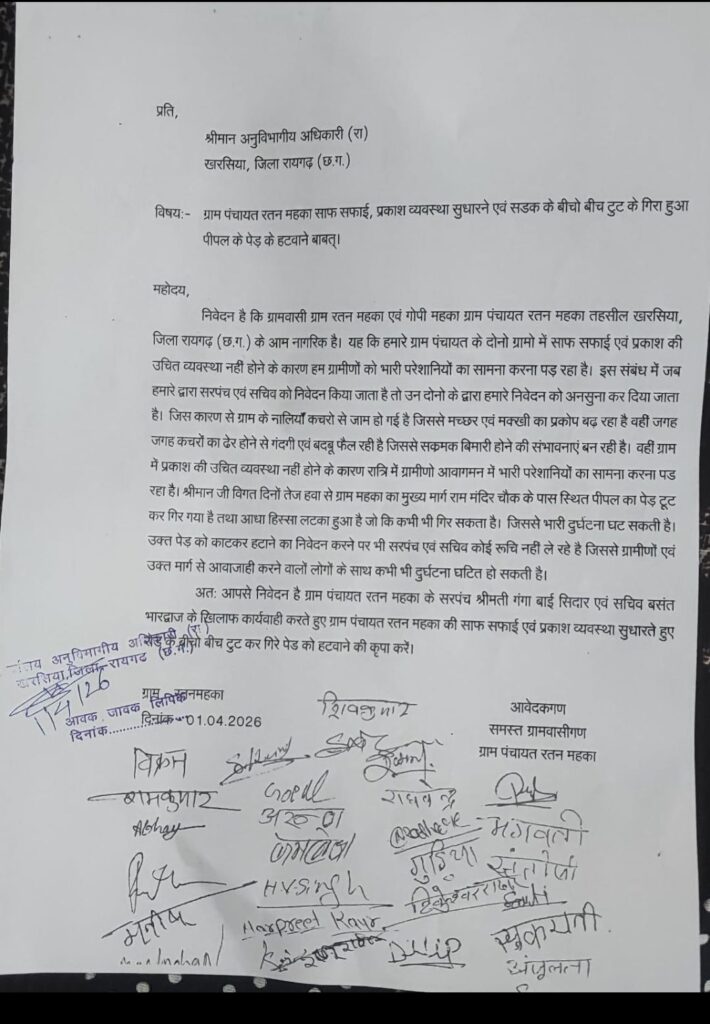 प्रति,
श्रीमान अनुविभागीय अधिकारी (रा)
खरसिया, जिला रायगढ़ (छ.ग.)
विषय:- ग्राम पंचायत रतन महका साफ सफाई, प्रकाश व्यवस्था सुधारने एवं सडक के बीचो बीच टुट के गिरा हुआ
पीपल के पेड़ के हटवाने बाबत्।
महोदय,
निवेदन है कि ग्रामवासी ग्राम रतन महका एवं गोपी महका ग्राम पंचायत रतन महका तहसील खरसिया,
जिला रायगढ़ (छ.ग.) के आम नागरिक है। यह कि हमारे ग्राम पंचायत के दोनो ग्रामो में साफ सफाई एवं प्रकाश की
उचित व्यवस्था नहीं होने के कारण हम ग्रामीणों को भारी परेशानियों का सामना करना पड़ रहा है। इस संबंध में जब
हमारे द्वारा सरपंच एवं सचिव को निवेदन किया जाता है तो उन दोनो के द्वारा हमारे निवेदन को अनसुना कर दिया जाता
है। जिस कारण से ग्राम के नालियाँ कचरो से जाम हो गई है जिससे मच्छर एवं मक्खी का प्रकोप बढ़ रहा है वहीं जगह
जगह कचरों का ढेर होने से गंदगी एवं बदबू फैल रही है जिससे सक्रमक बिमारी होने की संभावनाएं बन रही है। वहीं ग्राम
में प्रकाश की उचित व्यवस्था नहीं होने के कारण रात्रि में ग्रामीणो आवागमन में भारी परेशानियों का सामना करना पड
रहा है। श्रीमान जी विगत दिनों तेज हवा से ग्राम महका का मुख्य मार्ग राम मंदिर चौक के पास स्थित पीपल का पेड़ टूट
कर गिर गया है तथा आधा हिस्सा लटका हुआ है जो कि कभी भी गिर सकता है। जिससे भारी दुर्घटना घट सकती है।
उक्त पेड़ को काटकर हटाने का निवेदन करने पर भी सरपंच एवं सचिव कोई रूचि नही ले रहे है जिससे ग्रामीणों एवं
उक्त मार्ग से आवाजाही करने वालों लोगों के साथ कभी भी दुर्घटना घटित हो सकती है।
अत: आपसे निवेदन है ग्राम पंचायत रतन महका के सरपंच श्रीमती गंगा बाई सिदार एवं सचिव बसंत
भारद्वाज के खिलाफ कार्यवाही करते हुए ग्राम पंचायत रतन महका की साफ सफाई एवं प्रकाश व्यवस्था सुधारते हुए
के बीचो बीच टुट कर गिरे पेड को हटवाने की कृपा करें।
अनुविभागीय (रा)
खरसिया, जिला-रायगढ़ (छ.ग.)
1/4/26
आवक जावक लिपिक
दिनांक
ग्राम रतनमहका
दिनांक 01.04.2026
आवेदकगण
समस्त ग्रामवासीगण
ग्राम पंचायत रतन महका
शिवकुमार
विक्रम
रामकुमार
Gopal
राघवेन्द्र
Abhay
भगवती
गुड़िया
H.V.Singh
मनीष
Harpreet Kaur
Dilip
सुकयती
अंजूलता